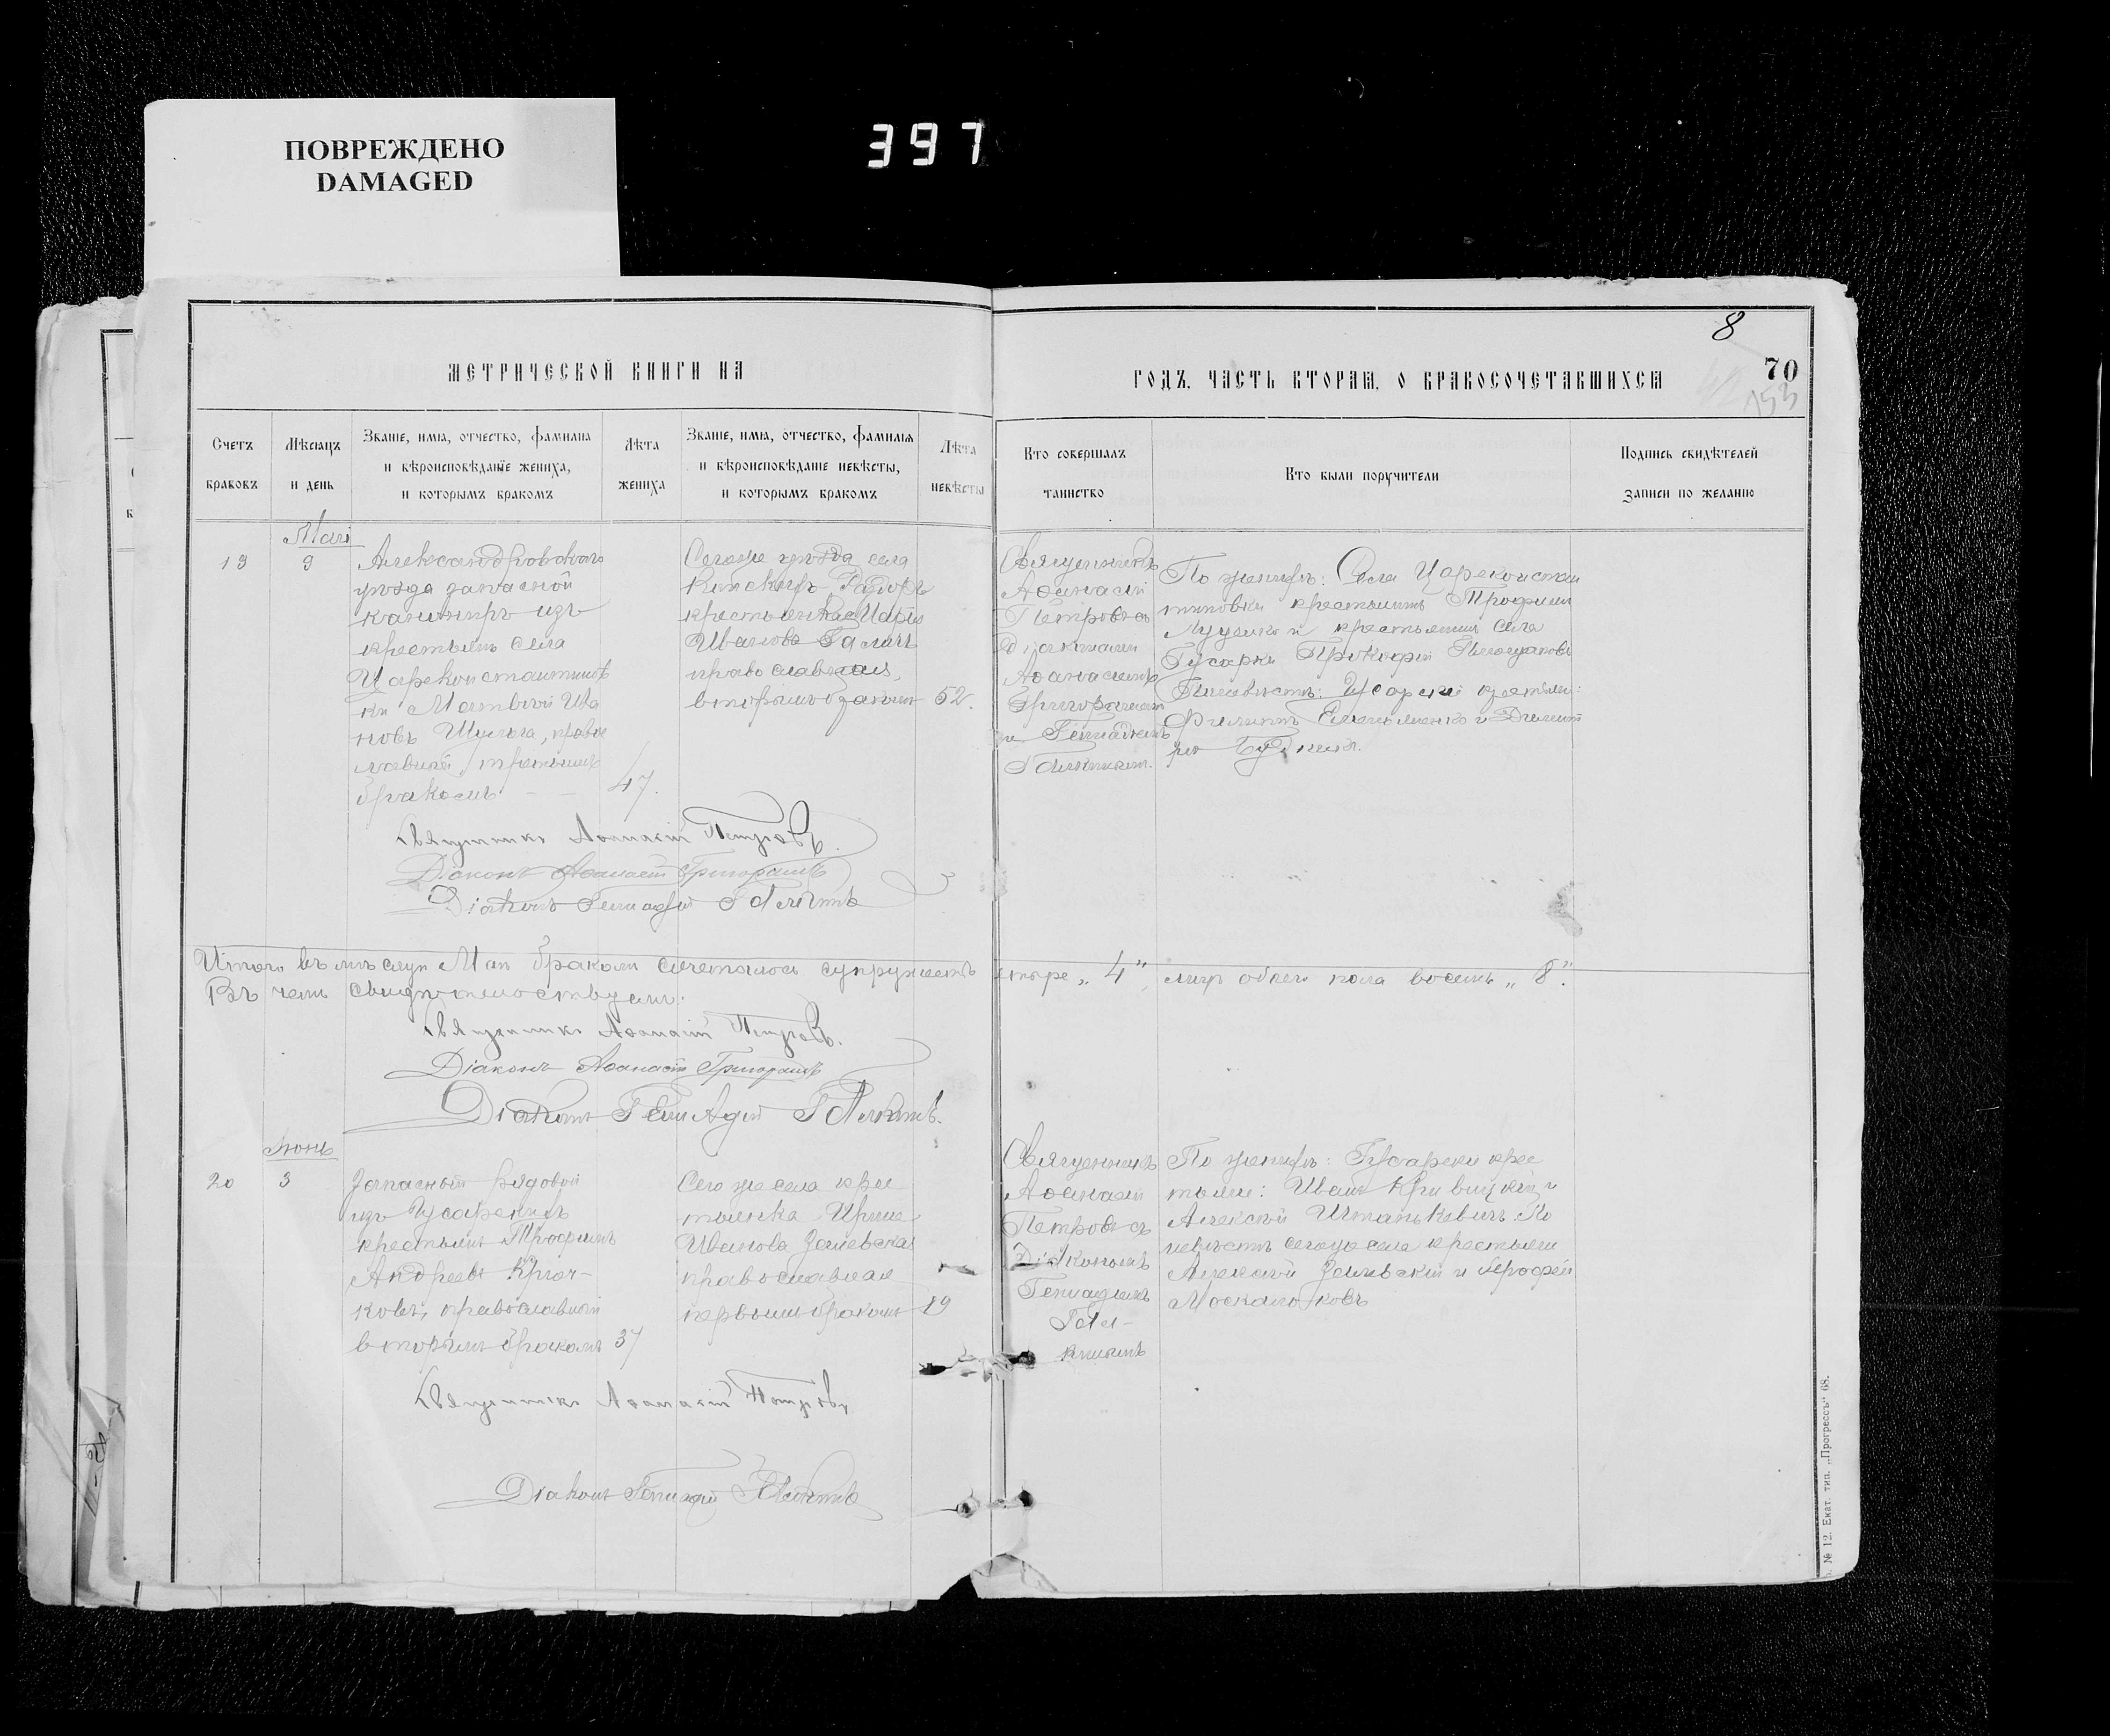 ПОВРЕЖДЕНО
DAMAGED
397
8
70
153
МЕТРИЧЕСКОЙ КНИГИ НА
ГОДЪ, ЧАСТЬ ВТОРАЯ, О БРАКОСОЧЕТАВШИХСЯ
Счетъ браковъ
Мѣсяцъ и день
Званіе, имя, отчество, фамилия
и вѣроисповѣданіе жениха,
и которымъ бракомъ
Лѣта жениха
Званіе, имя, отчество, фамилія
и вѣроисповѣданіе невѣсты,
и которымъ бракомъ
Лѣта невѣсты
Кто совершалъ таинство
Кто были поручители
Подпись свидѣтелей
записи по желанію
Май
19
9
Александровскаго
уѣзда запасной
канониръ изъ
крестьянъ села
Цареконстантинов
ки Матвѣй Ива
новъ, правос
лавный, третьимъ
бракомъ
47.
Сегоже уѣзда села
крестьянка Марія
Иванова
православная,
вторымъ бракомъ
52.
Священникъ
Аѳанасій
Петровъ съ
діаконами
Аѳанасіемъ
Григорашемъ
и Геннадіемъ
По женихѣ: Села Цареконстан
тиновки крестьянинъ Трофим
Луценко и крестьянинъ села
Гусарки Прокофій
По невѣстѣ: Гусарки крестьян:
Филиппъ и Димит
рій
Священникъ Аѳанасій Петровъ.
Діаконъ Аѳанасій Григорашъ
Діаконъ Геннадій
Итого въ мѣсяцѣ Маѣ бракомъ сочеталось супружествъ четыре „4“, лицъ обоего пола восемь „8“.
Въ чемъ свидѣтельствуемъ:
Священникъ Аѳанасій Петровъ.
Діаконъ Аѳанасій Григорашъ
Діаконъ Геннадій
Іюнь
20
3
Запасный рядовой
изъ Гусарскихъ
крестьянъ Трофимъ
Андреевъ Крюч-
ковъ, православный
вторымъ бракомъ
37
Сего же села крес
тьянка Ирина
Иванова
православная
первымъ бракомъ
Священникъ
Аѳанасій
Петровъ съ
Діакономъ
Геннадіемъ
По женихѣ: Гусарски крес
тьяне: Иванъ Кривицкій и
Алексѣй Штанькевичъ. По
невѣстѣ сегоже села крестьяне
Алексѣй и
Священникъ Аѳанасій Петровъ
Діаконъ Геннадій
№ 12. Екат. тип. „Прогрессъ“ 68.